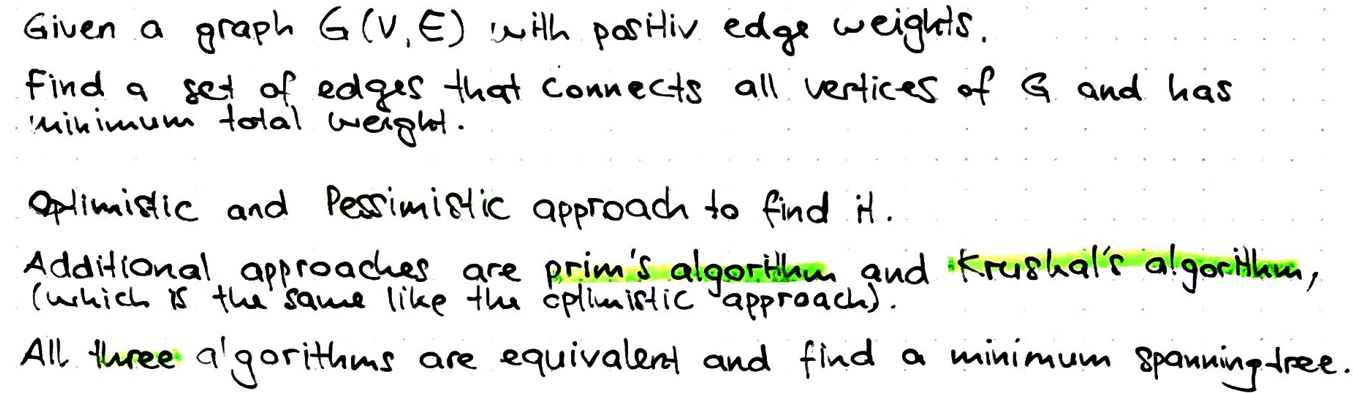 Given a graph G(V,E) with positiv edge weights.
Find a set of edges that connects all vertices of G and has
minimum total weight.
Optimistic and Pessimistic approach to find it.
Additional approaches are prim's algorithm and Krushal's algorithm,
(which is the same like the optimistic approach).
All three algorithms are equivalent and find a minimum spanningtree.